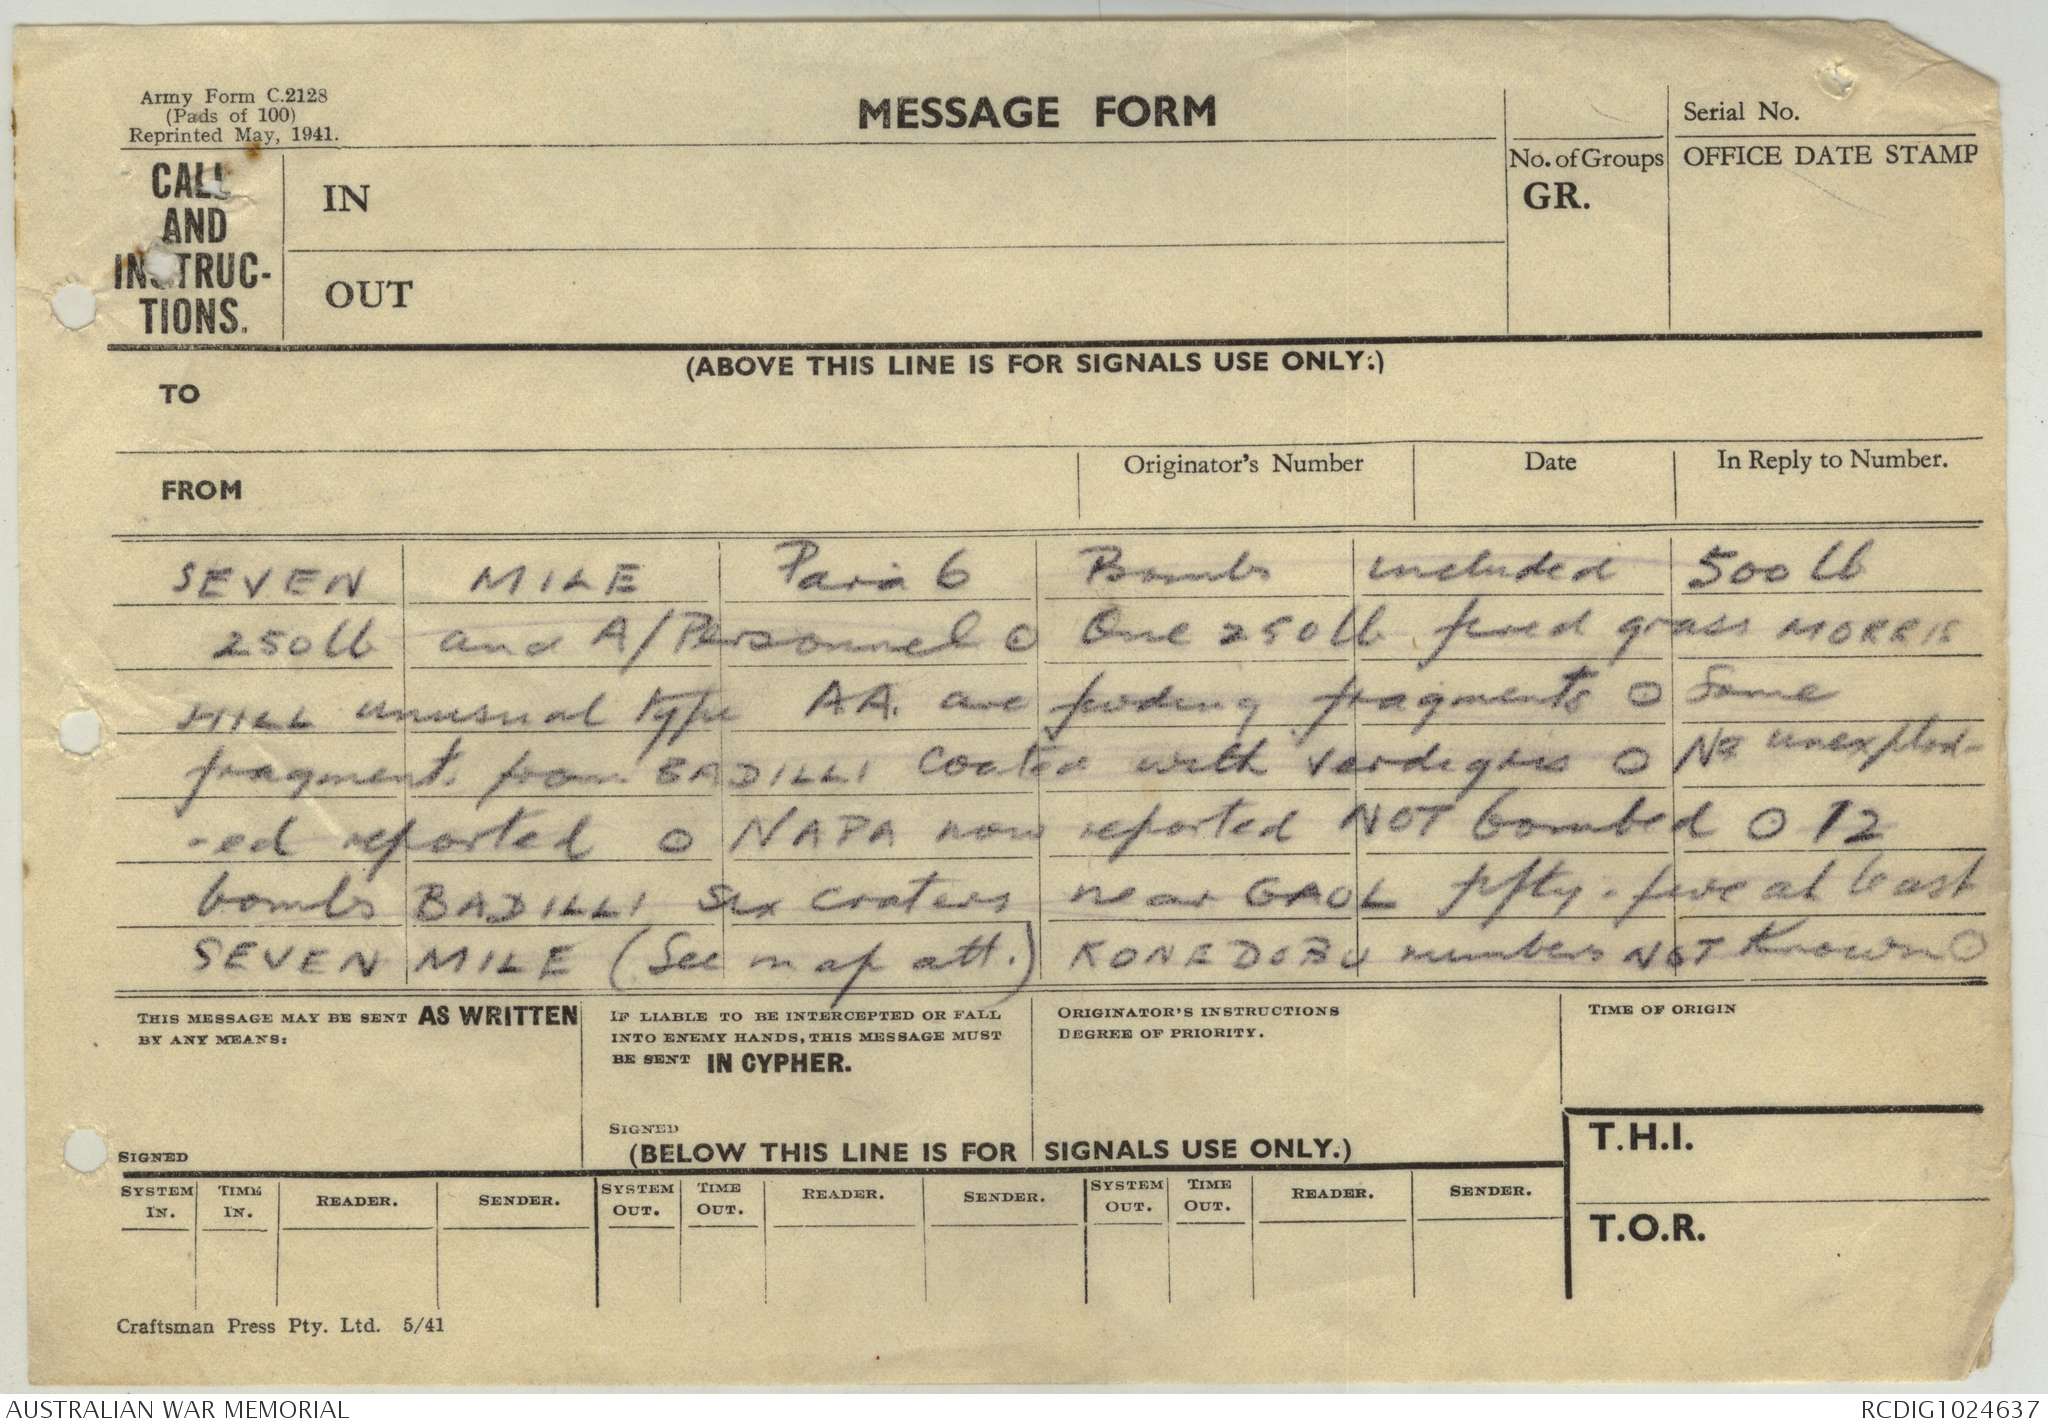 Army Form C.2128
(Pads of 100)
Reprinted May, 1941.
MESSAGE FORM
Serial No.
No. of Groups
GR.
OFFICE DATE STAMP
CALL
AND
INSTRUC-
TIONS.
IN
OUT
(ABOVE THIS LINE IS FOR SIGNALS USE ONLY.)
TO
FROM
Originator's Number
Date
In Reply to Number.
SEVEN MILE Para 6 Bombs included 500lb
250lb and A/Personnel O One 250lb fired grass MORRIS
HILL unusual type AA. are finding fragments O Some
fragments from BADILLI coated with verdigris O No unexplod-
-ed reported O NAPA now reported NOT bombed O 12
bombs BADILLI six craters near GAOL fifty-five at least
SEVEN MILE (See map att.) KONEDOBU numbers NOT known O
THIS MESSAGE MAY BE SENT AS WRITTEN
BY ANY MEANS:
SIGNED
IF LIABLE TO BE INTERCEPTED OR FALL
INTO ENEMY HANDS, THIS MESSAGE MUST
BE SENT IN CYPHER.
SIGNED
ORIGINATOR'S INSTRUCTIONS
DEGREE OF PRIORITY.
TIME OF ORIGIN
(BELOW THIS LINE IS FOR SIGNALS USE ONLY.)
T.H.I.
T.O.R.
SYSTEM IN. TIME IN. READER. SENDER. SYSTEM OUT. TIME OUT. READER. SENDER. SYSTEM OUT. TIME OUT. READER. SENDER.
Craftsman Press Pty. Ltd. 5/41
AUSTRALIAN WAR MEMORIAL
RCDIG1024637